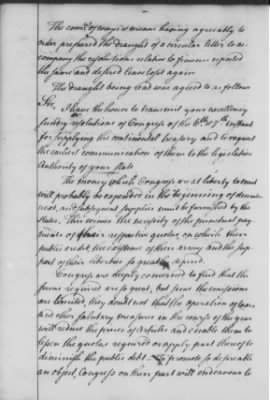 The com.ee of ways & means having agreeably to
order prepared the draught of a circular letter to ac-
company the resolutions relative to finance reported
the same and desired leave to sit again
The draught being read was agreed to as follows
Sir, I have the honor to transmit your excellency
sundry resolutions of Congress of the 6th & 7th instant
for supplying the continental treasury and to request
the earliest communication of them to the legislative
Authority of your State
The money which Congress are at liberty to emit
will probably be expended in the beginning of decem-
ber next, and subsequent supplies must be furnished by the
states. This evinces the necessity of the punctual pay-
ment of their respective quotas, on which their
public credit, the existence of their army and the sup-
port of their liberties so greatly depend.
Congress are deeply concerned to find that the
sums required are so great, but since the emissions
are limited, they doubt not that the operation of taxes
and other salutary measures in the course of the year
will reduce the prices of Articles and enable them to
lessen the quotas required or apply part thereof to
diminish the public debt. To promote so desireable
an object, Congress on their part will endeavour to